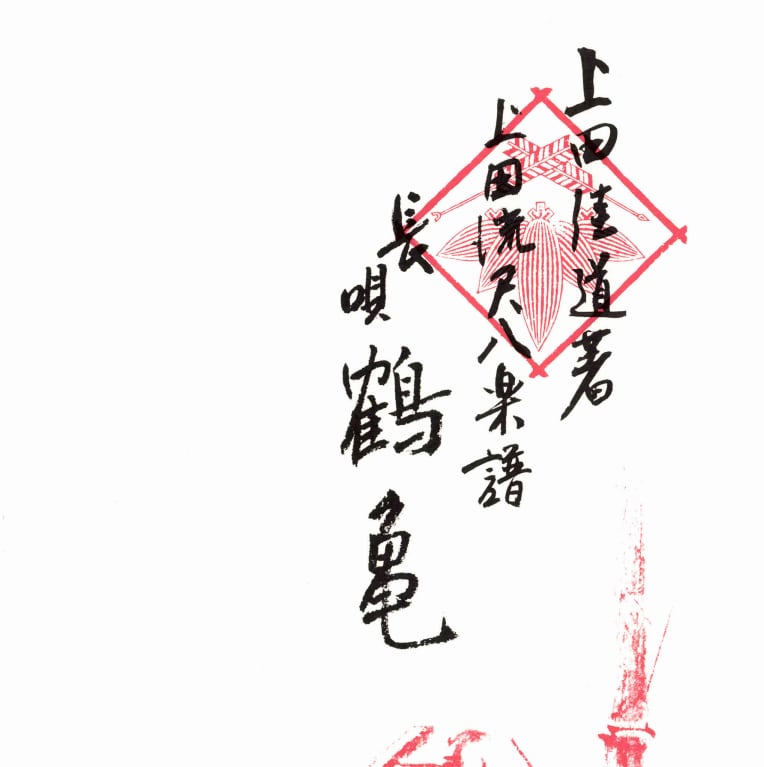 上田佳道著
上田流尺八楽譜
長唄
鶴亀